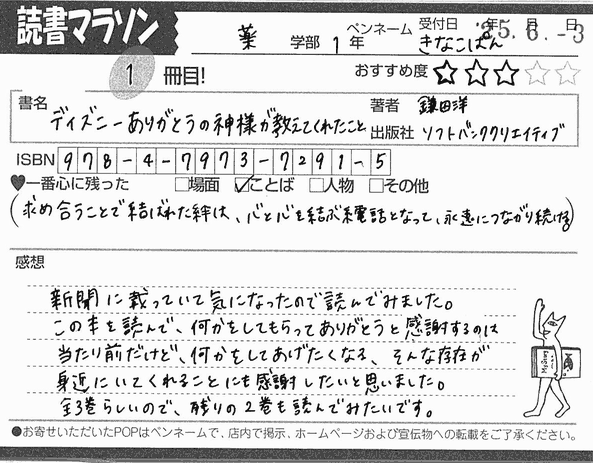 読書マラソン
薬 学部 1 年 ペンネーム きなこぱん 受付日 '25. 6. -3 年 月 日
1 冊目! おすすめ度 ★★★☆☆
書名 ディズニーありがとうの神様が教えてくれたこと
著者 鎌田洋
出版社 ソフトバンククリエイティブ
ISBN 978-4-7973-7291-5
♥一番心に残った □場面 ☑ことば □人物 □その他
(求め合うことで結ばれた絆は、心と心を結ぶ糸電話となって、永遠につながり続ける)
感想
新聞に載っていて気になったので読んでみました。
この本を読んで、何かをしてもらってありがとうと感謝するのは
当たり前だけど、何かをしてあげたくなる、そんな存在が
身近にいてくれることにも感謝したいと思いました。
全3巻らしいので、残りの2巻も読んでみたいです。
●お寄せいただいたPOPはペンネームで、店内で掲示、ホームページおよび宣伝物への転載をご了承ください。